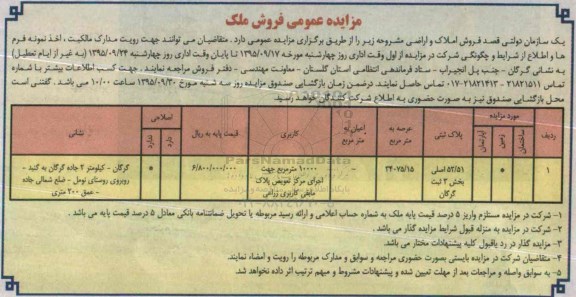 مزایده عمومی فروش ملک
یک سازمان دولتی قصد فروش املاک و اراضی مشروحه زیر را از طریق برگزاری مزایده عمومی دارد. متقاضیان می توانند جهت رویت مدارک مالکیت، اخذ نمونه فرم
ها و اطلاع از شرایط و چگونگی شرکت در مزایده از اول وقت اداری روز چهارشنبه مورخه ۱۳۹۵/۰۹/۱۷ تا پایان وقت اداری روز چهارشنبه ۱۳۹۵/۰۹/۲۴ (به غیر از ایام تعطیل)
به نشانی گرگان - جنب پل انجیراب - ستاد فرماندهی انتظامی استان گلستان - معاونت مهندسی - دفتر فروش مراجعه نمایند. جهت کسب اطلاعات بیشتر با شماره
تماس ۲۱۸۲۱۵۱۱ - ۰۱۷-۲۱۸۲۱۴۱۳ تماس حاصل نمایند. درضمن زمان بازگشایی صندوق مزایده روز سه شنبه مورخ ۱۳۹۵/۰۹/۳۰ ساعت ۱۰/۰۰ می باشد. گفتنی است
محل بازگشایی صندوق نیز به صورت حضوری به اطلاع شرکت کنندگان خواهد رسید.
ردیف مورد مزایده ساختمان زمین آپارتمان پلاک ثبتی عرصه به متر مربع اعیان به متر مربع کاربری قیمت پایه به ریال اصلاحی دارد ندارد نشانی
۱ * ۵۲/۵۱ اصلی ۲۴۰۷۵/۱۵ - ۱۰۰۰۰ مترمربع جهت ۶/۸۰۰/۰۰۰/۰۰۰ * گرگان - کیلومتر ۲ جاده گرگان به گنبد -
بخش ۳ ثبت اجرای مرکز تعویض پلاک روبروی روستای نومل - ضلع شمالی جاده
گرگان مابقی کاربری زراعی - عمق ۲۰۰ متری
ParsNamadData
۱- شرکت در مزایده مستلزم واریز ۵ درصد قیمت پایه ملک به شماره حساب اعلامی و ارائه رسید مربوطه یا تحویل ضمانتنامه بانکی معادل ۵ درصد قیمت پایه می باشد.
۲- شرکت در مزایده به منزله قبول شرایط مزایده گذار می باشد.
۳- مزایده گذار در رد یاقبول کلیه پیشنهادات مختار می باشد.
۴- متقاضیان شرکت در مزایده بایستی بصورت حضوری مراجعه و سوابق و مدارک مربوطه را رویت و امضاء نمایند.
۵- به سوابق واصله و مراجعات بعد از مهلت تعیین شده و پیشنهادات مشروط و مبهم ترتیب اثر داده نخواهد شد.